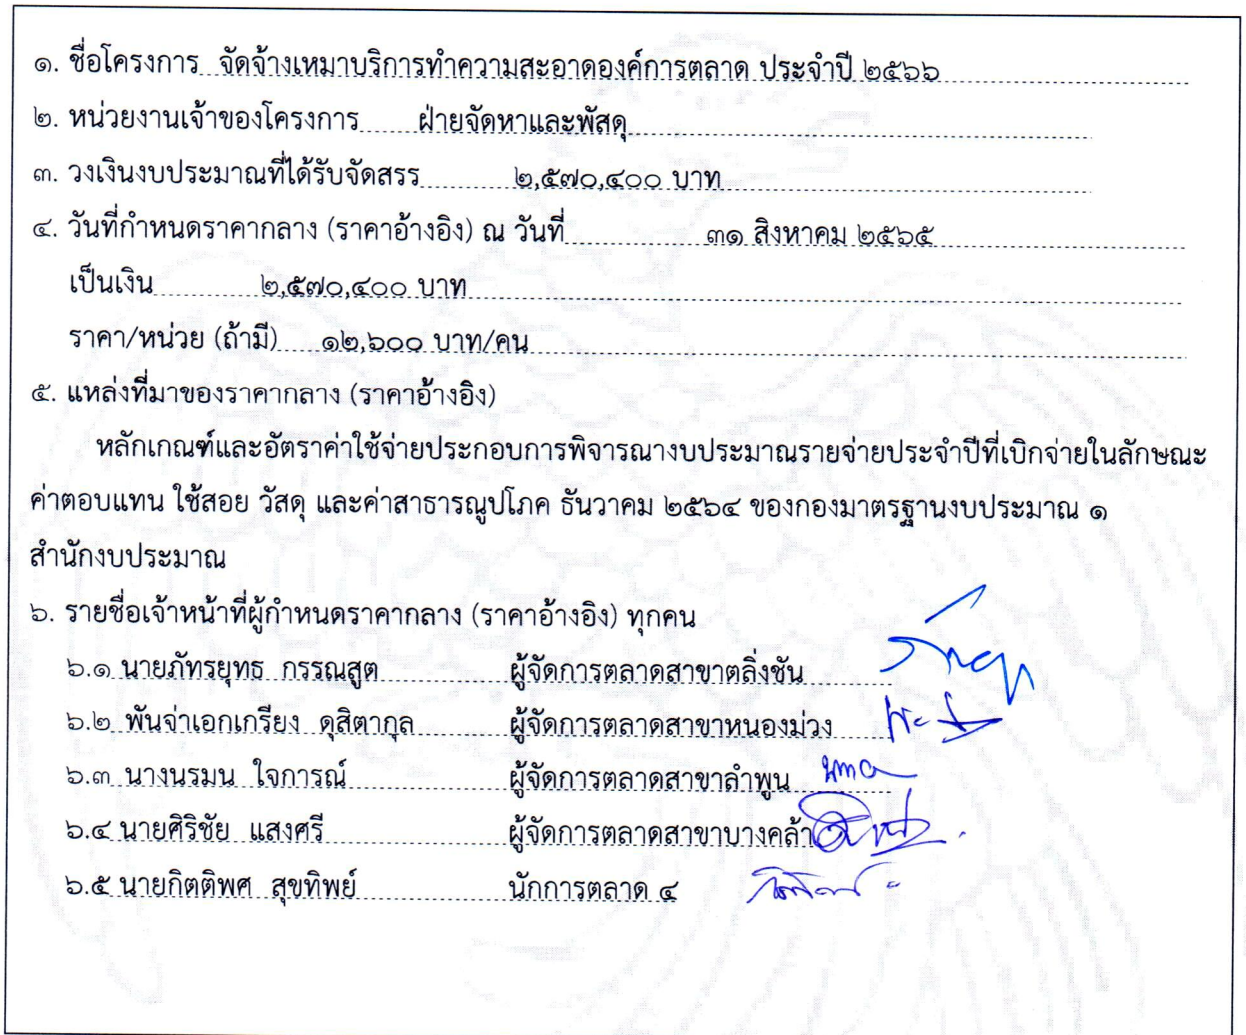 ๑. ชื่อโครงการ จัดจ้างเหมาบริการทำความสะอาดองค์การตลาด ประจำปี ๒๕๖๖
๒. หน่วยงานเจ้าของโครงการ ฝ่ายจัดหาและพัสดุ
๓. วงเงินงบประมาณที่ได้รับจัดสรร ๒,๕๗๐,๔๐๐ บาท
๔. วันที่กำหนดราคากลาง (ราคาอ้างอิง) ณ วันที่ ๓๑ สิงหาคม ๒๕๖๕
เป็นเงิน ๒,๕๗๐,๔๐๐ บาท
ราคา/หน่วย (ถ้ามี) ๑๒,๖๐๐ บาท/คน
๕. แหล่งที่มาของราคากลาง (ราคาอ้างอิง)
หลักเกณฑ์และอัตราค่าใช้จ่ายประกอบการพิจารณางบประมาณรายจ่ายประจำปีที่เบิกจ่ายในลักษณะ
ค่าตอบแทน ใช้สอย วัสดุ และค่าสาธารณูปโภค ธันวาคม ๒๕๖๔ ของกองมาตรฐานงบประมาณ ๑
สำนักงบประมาณ
๖. รายชื่อเจ้าหน้าที่ผู้กำหนดราคากลาง (ราคาอ้างอิง) ทุกคน
๖.๑ นายภัทรยุทธ กรรณสูต ผู้จัดการตลาดสาขาตลิ่งชัน
๖.๒ พันจ่าเอกเกรียง ดุสิตากุล ผู้จัดการตลาดสาขาหนองม่วง
๖.๓ นางนรมน ใจการณ์ ผู้จัดการตลาดสาขาลำพูน
๖.๔ นายศิริชัย แสงศรี ผู้จัดการตลาดสาขาบางคล้า
๖.๕ นายกิตติพศ สุขทิพย์ นักการตลาด ๔